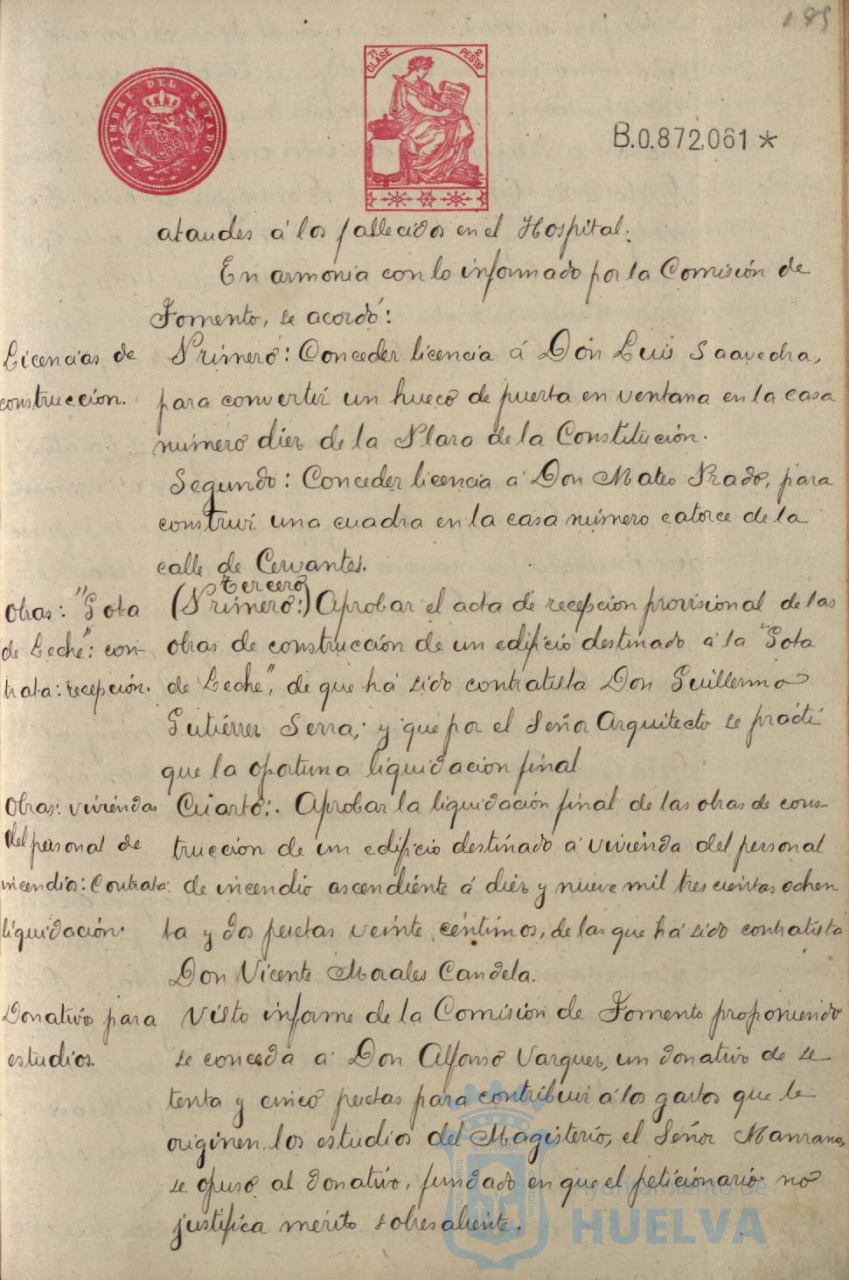 185
TIMBRE DEL ESTADO
7ª CLASE 2 PESTAS
B.0.872,061 *
ataudes á los fallecidos en el Hospital.
En armonía con lo informado por la Comisión de
Fomento, se acordó:
Licencias de
construcción.
Primero: Conceder licencia á Don Luis Saavedra,
para convertir un hueco de puerta en ventana en la casa
número diez de la Plaza de la Constitución.
Segundo: Conceder licencia á Don Mateo Prado, para
construir una cuadra en la casa número catorce de la
calle de Cervantes.
Obras: "Gota
de Leche": con-
trata: recepción.
tercero
(Primero:) Aprobar el acta de recepción provisional de las
obras de construcción de un edificio destinado á la "Gota
de Leche", de que há sido contratista Don Guillermo
Gutiérrez Serra; y que por el Señor Arquitecto se practi
que la oportuna liquidación final
Obras: viviendas
del personal de
incendios: Contrata:
liquidación.
Cuarto:. Aprobar la liquidación final de las obras de cons-
trucción de un edificio destinado á vivienda del personal
de incendio ascendiente á diez y nueve mil trescientas ochen
ta y dos pesetas veinte céntimos, de las que há sido contratista
Don Vicente Morales Candela.
Donativo para
estudios.
Visto informe de la Comisión de Fomento proponiendo
se conceda á Don Alfonso Vazquez, un donativo de se
tenta y cinco pesetas para contribuir á los gastos que le
originen los estudios del Magisterio, el Señor Manzano,
se opuso al donativo, fundado en que el peticionario no
justifica mérito sobresaliente.
Ayuntamiento de
HUELVA